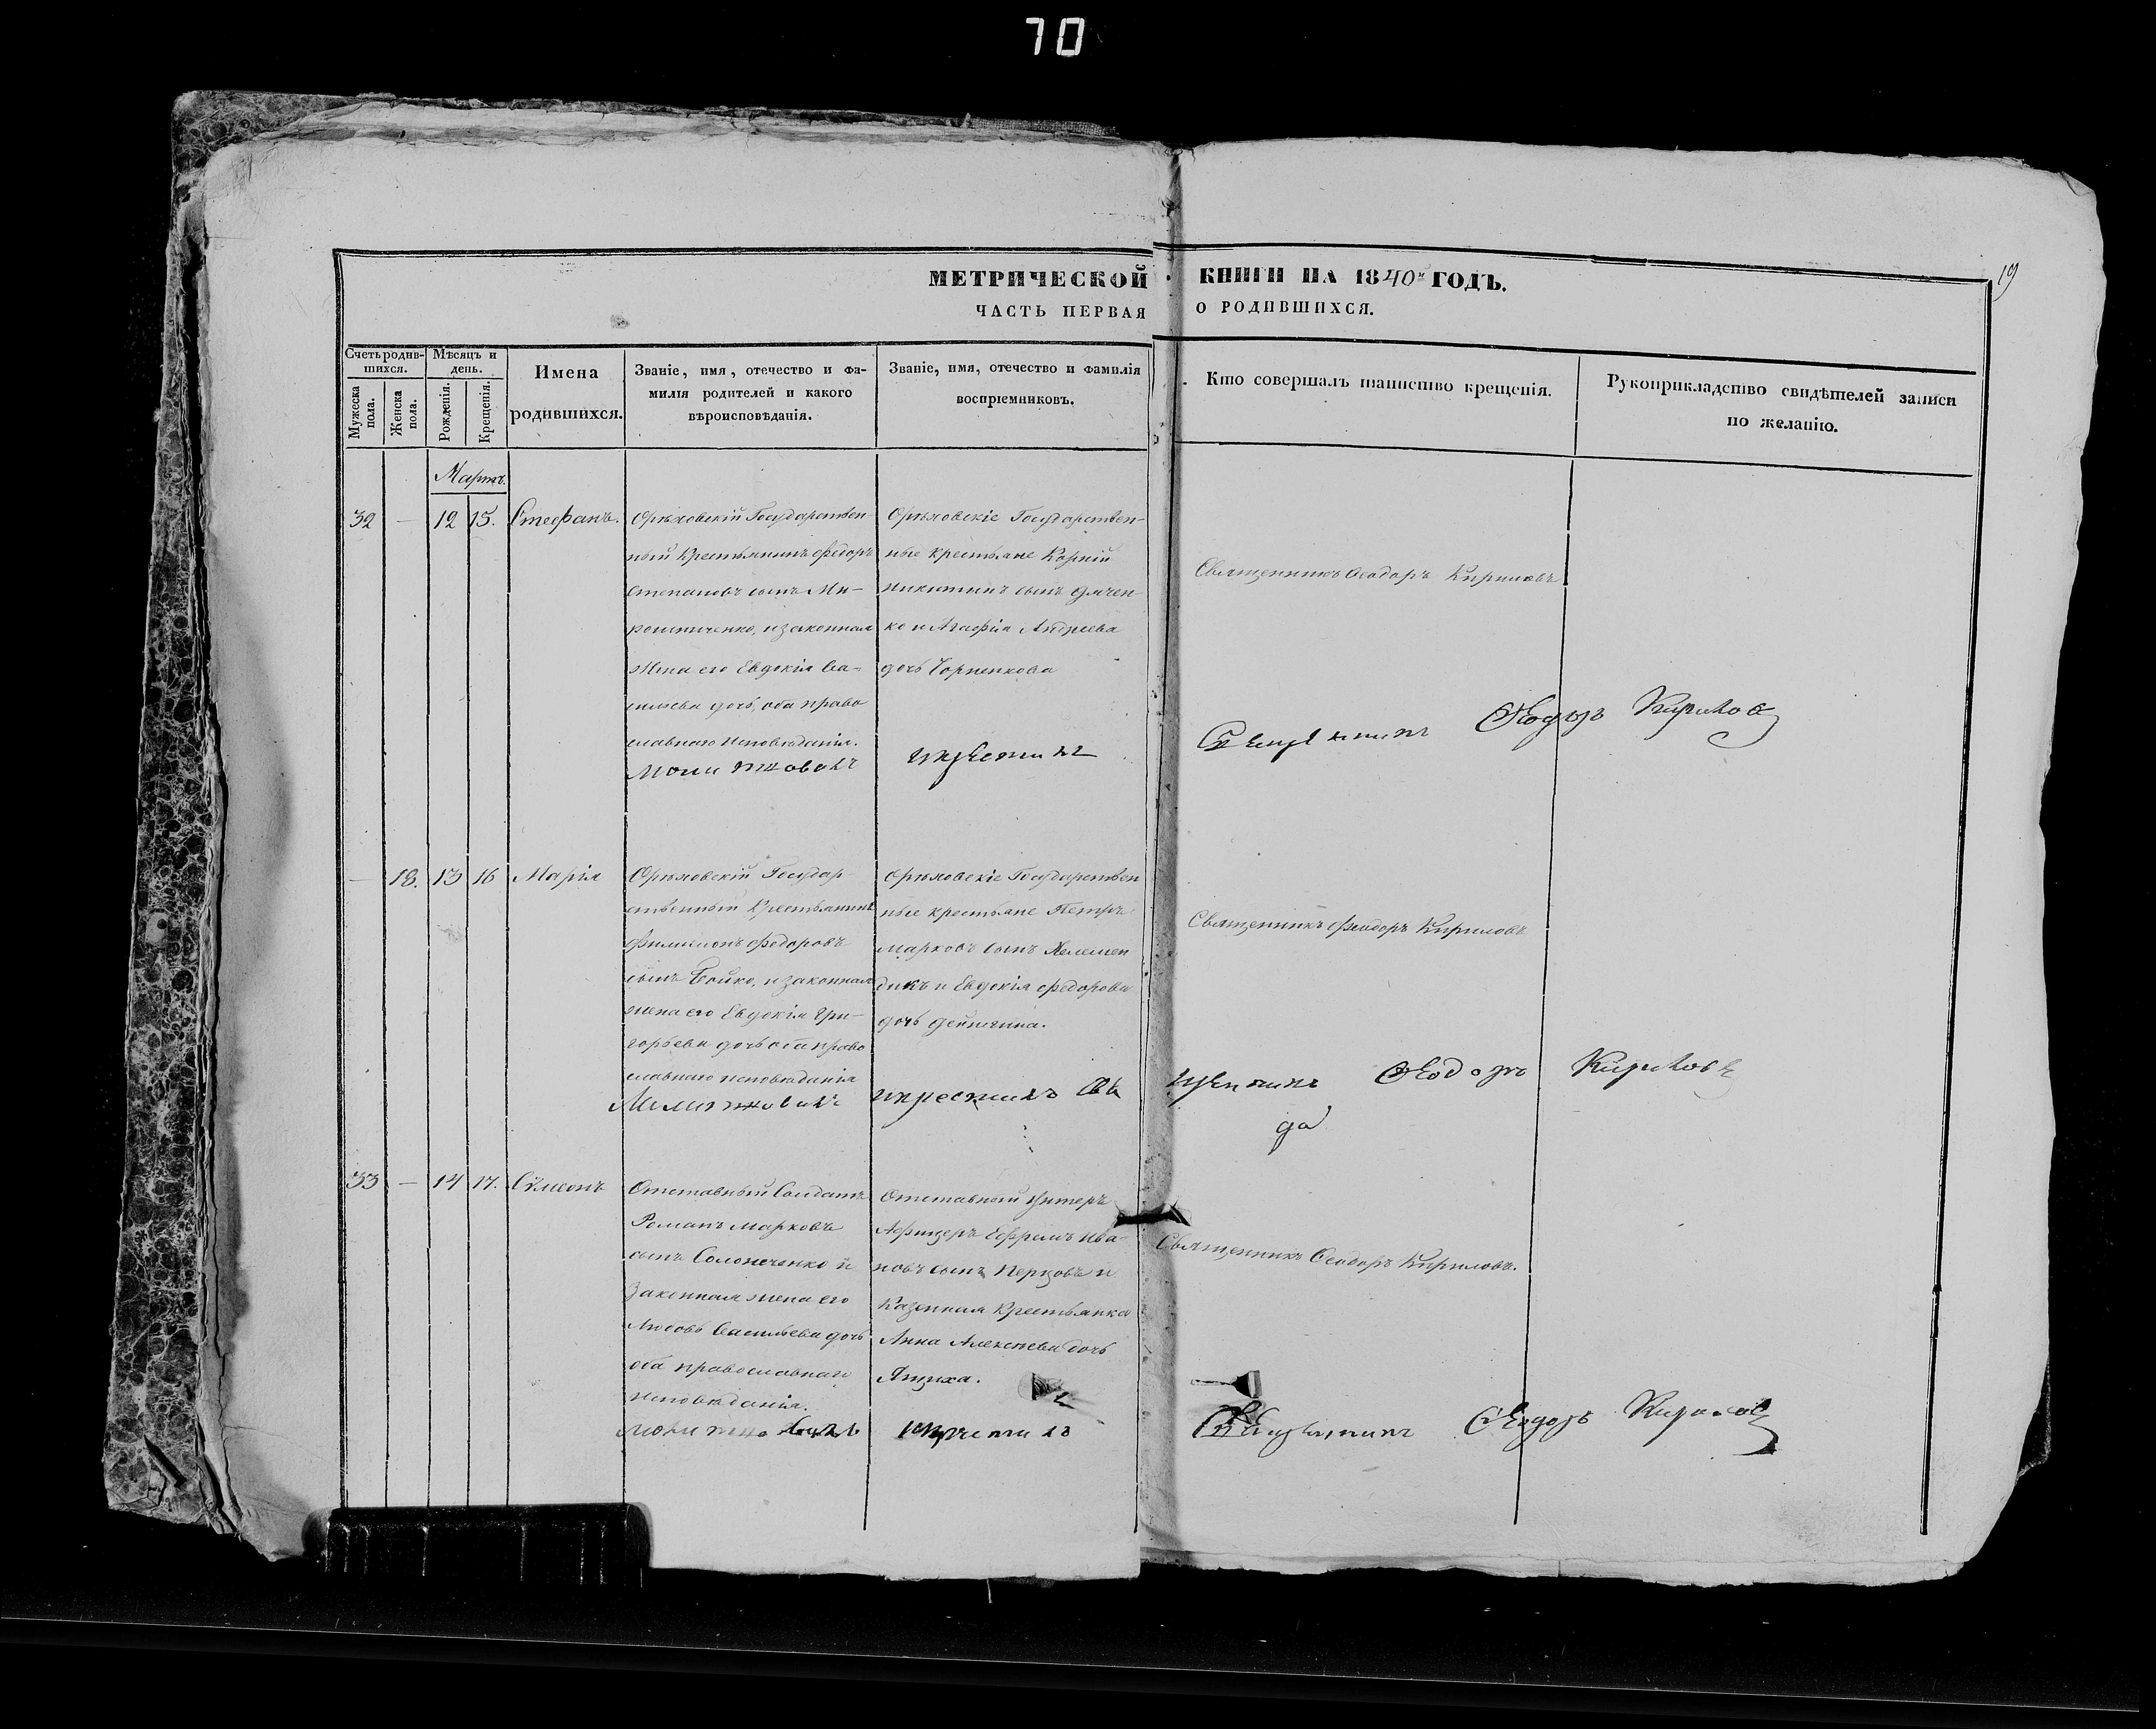 70
МЕТРИЧЕСКОЙ КНИГИ НА 1840й ГОДЪ.
19
ЧАСТЬ ПЕРВАЯ О РОДИВШИХСЯ.
Счетъ родив-
шихся.
Мужеска пола.
Женска пола.
Мѣсяцъ и
день.
Рожденія.
Крещенія.
Имена
родившихся.
Званіе, имя, отечество и фа-
милія родителей и какого
вѣроисповѣданія.
Званіе, имя, отечество и фамилія
воспріемниковъ.
Кто совершалъ таинство крещенія.
Рукоприкладство свидѣтелей записи
по желанію.
Мартъ.
32 — 12 15. Стефанъ.
Орѣховскій Государствен-
ный Крестьянинъ Федоръ
Степановъ сынъ Ми-
рошниченко, и законная
жена его Евдокія Ва-
сильева дочь, оба право
славнаго исповѣданія.
Орѣховскіе Государствен-
ные крестьяне Корній
Никитинъ сынъ Дячен-
ко и Агафія Андреева
дочь Чорненкова
Священникъ Феодоръ Кириловъ
Молитвовалъ и крестилъ Священникъ Феодоръ Кириловъ
— 18. 13 16 Марія
Орѣховскій Государ-
ственный Крестьянинъ
Филимонъ Федоровъ
сынъ Бойко, и законная
жена его Евдокія Гри-
горьева дочь оба право
славнаго исповѣданія
Орѣховскіе Государствен
ные крестьяне Петръ
Марковъ сынъ
и Евдокія Федорова
дочь
Священникъ Феодоръ Кириловъ
Молитвовалъ и крестилъ Священникъ Феодоръ Кириловъ
33 — 14 17. Сѵмеонъ
Отставный Солдатъ
Романъ Марковъ
сынъ Солонеченко и
Законная жена его
Любовь Васильева дочь
оба православнаго
исповѣданія.
Отставной Унтеръ
Афицеръ Ефремъ Ива-
новъ сынъ Перцовъ и
Казенная Крестьянка
Анна Алексѣева дочь
Священникъ Феодоръ Кириловъ.
Молитвовалъ и крестилъ Священникъ Феодоръ Кириловъ